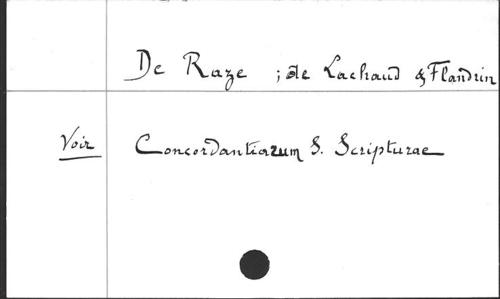 De Raze ; de Lachaud & Flandrin
Voir Concordantiarum S. Scripturae